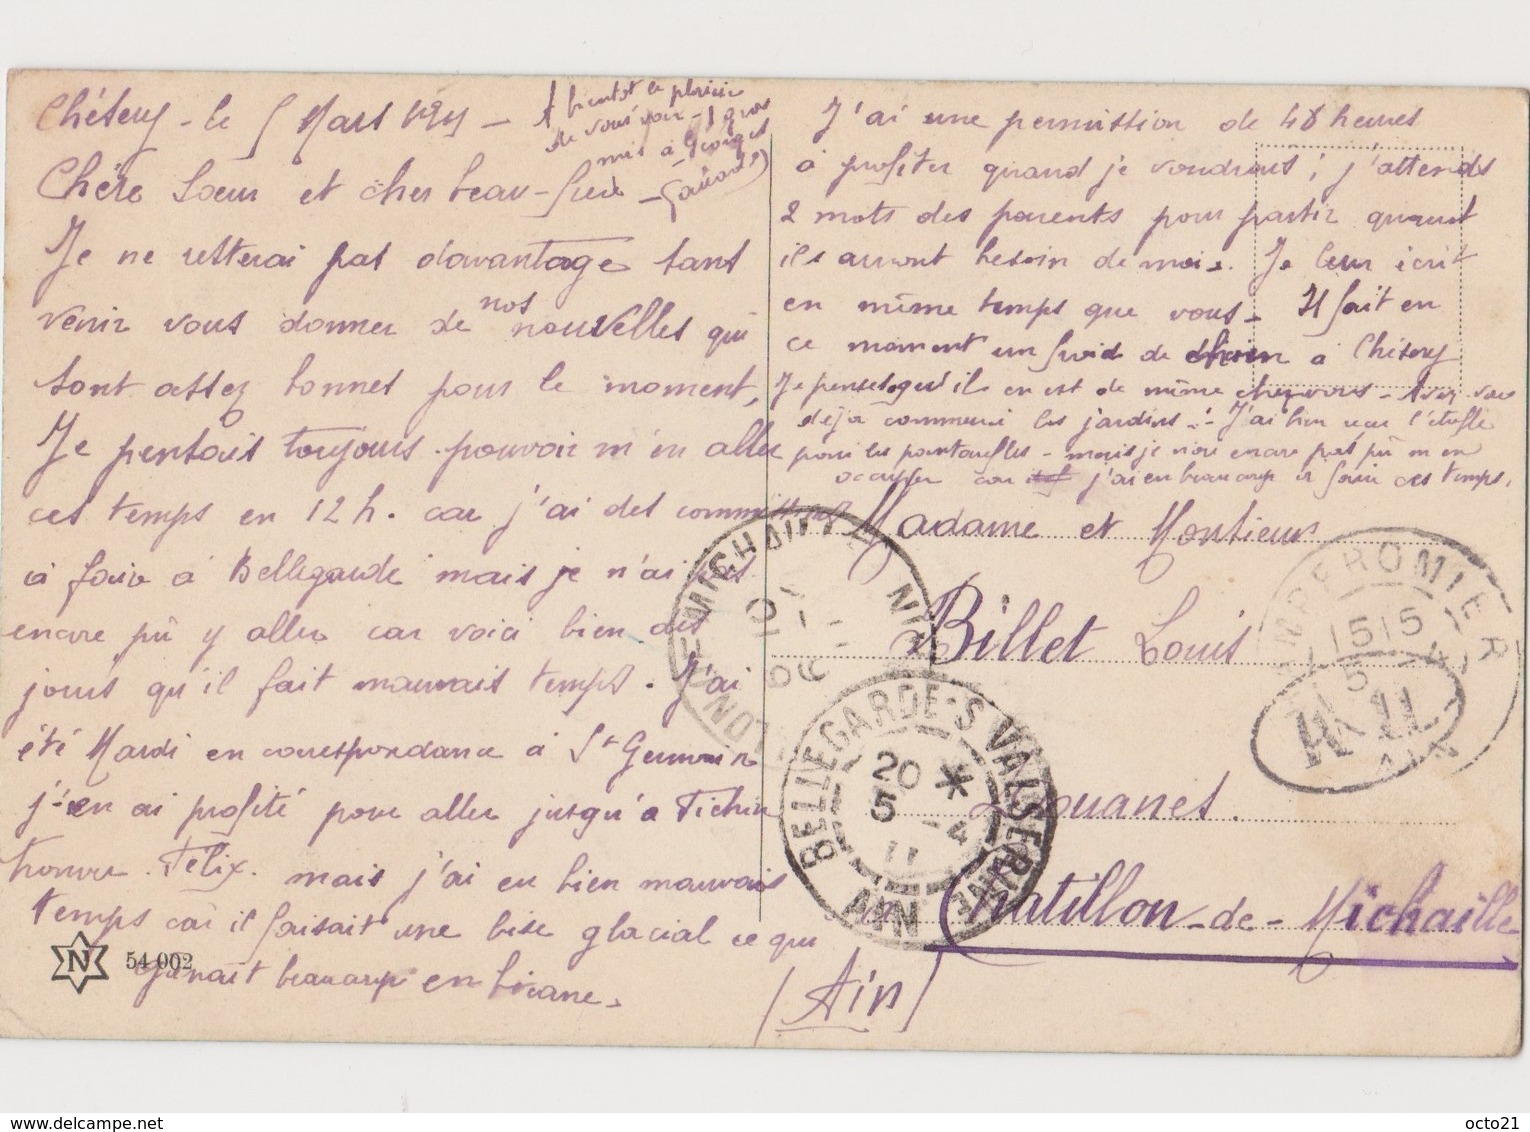 Chézery - le 5 Mars 1911 -
A bientot le plaisir
de vous voir - 1 gros
mis à Georges
Chère Sœur et cher beau-frère -
Je ne resterai pas davantage sans
venir vous donner de nos nouvelles qui
sont assez bonnes pour le moment,
Je pensais toujours pouvoir m'en aller
ces temps en 12 h. car j'ai des commissions
à faire à Bellegarde mais je n'ai pas
encore pû y aller car voici bien des
jours qu'il fait mauvais temps. J'ai
été Mardi en correspondance à St Germain
j'en ai profité pour aller jusqu'a
trouver Félix. mais j'ai eu bien mauvais
temps car il faisait une bise glacial ce qui
beaucoup en
N 54 002
J'ai une permission de 48 heures
à profiter quand je voudrais ; j'attends
2 mots des parents pour partir quand
ils auront besoin de moi. Je leur écrit
en même temps que vous - Il fait en
ce moment un froid de chien à Chézery
Je pense qu'il en est de même chez vous - Avez vous
déjà commencé les jardins -! J'ai bien reçu l'étoffe
pour les pantoufles - mais je n'ai encore pas pû m'en
occuper car j'ai eu beaucoup à faire ces temps.
Madame et Monsieur
Billet Louis
Douanes.
à Chatillon-de-Michaille
(Ain)
CHATILLON-DE-MICHAILLE AIN
CHAMPFROMIER AIN
15 15
5 4
BELLEGARDE-S-VALSERINE AIN
20 *
5 -4
11
© delcampe.net
octo21